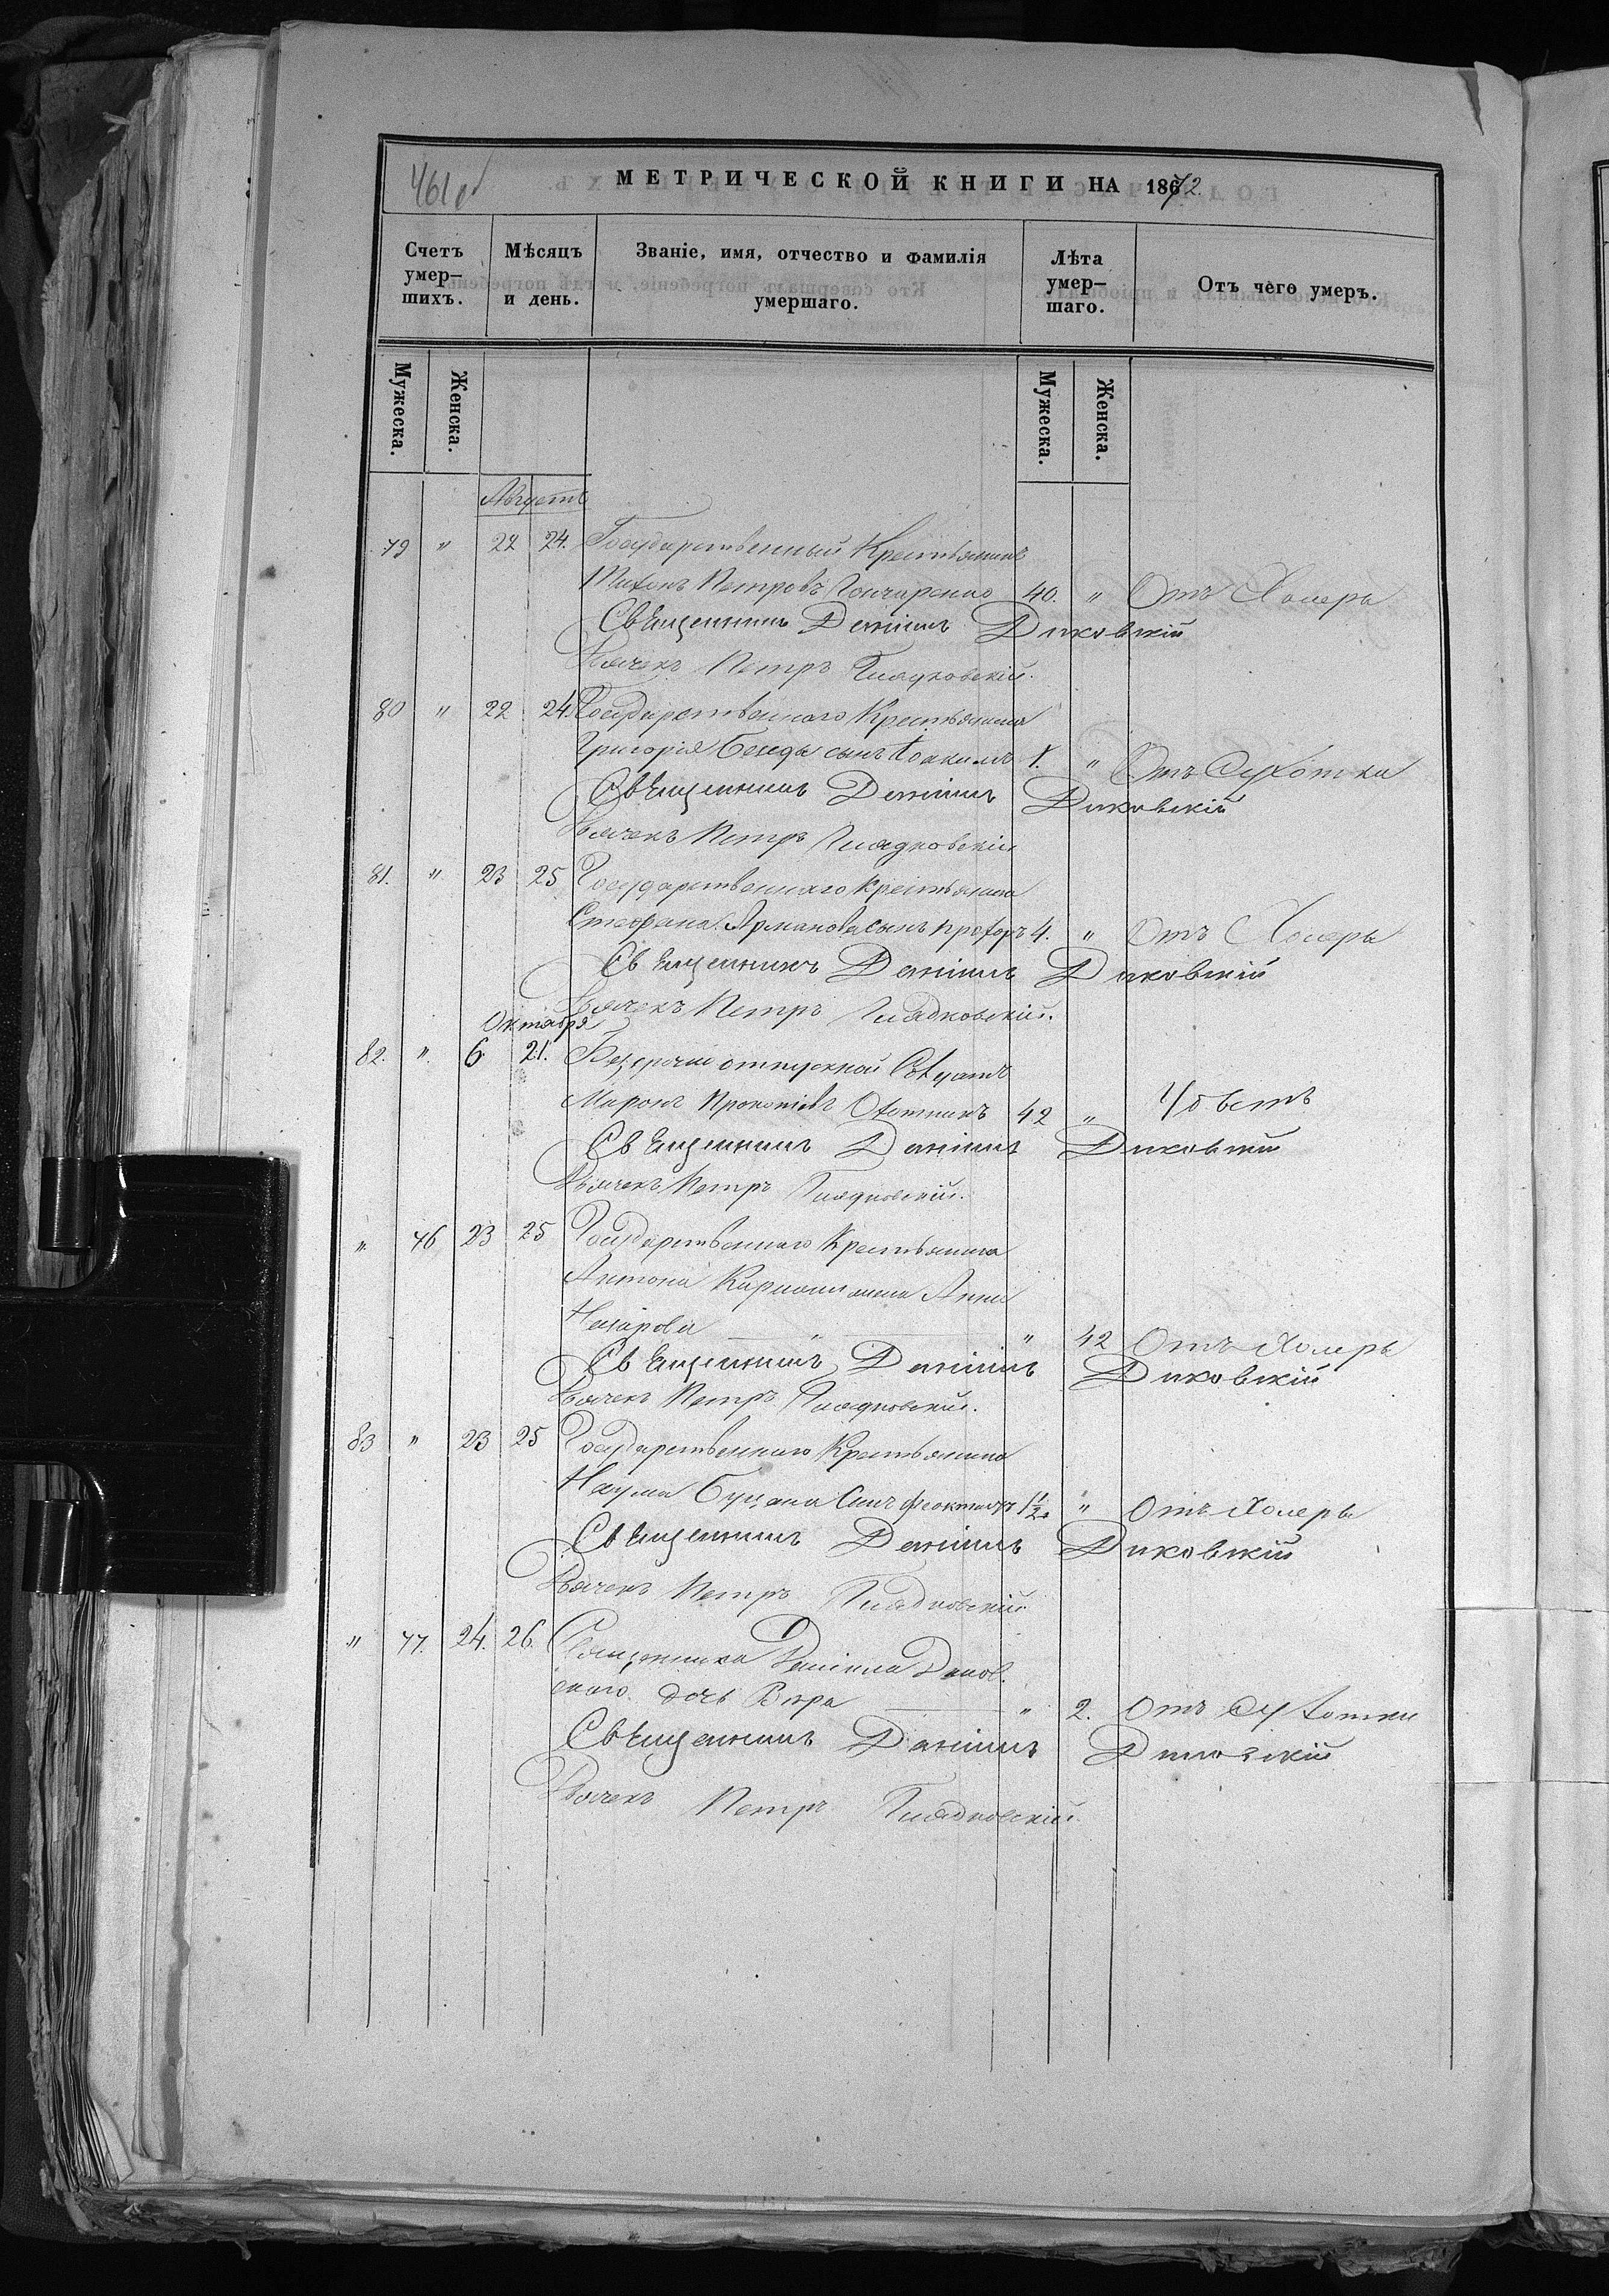 461об
МЕТРИЧЕСКОЙ КНИГИ НА 1872
Счетъ умер-шихъ. Мѣсяцъ и день. Званіе, имя, отчество и фамилія умершаго. Лѣта умер-шаго. Отъ чего умеръ.
Мужеска. Женска. Мужеска. Женска.
Августъ
79 " 22 24. Государственный Крестьянинъ
Тихонъ Петровъ Гончаренко 40. " Отъ Холеры
Священникъ Даніилъ Диковскій
Дьячекъ Петръ Гладковскій.
80 " 22 24. Государственнаго Крестьянина
Григорія Бенды сынъ Іоакимъ 1. " Отъ Сухотки
Священникъ Даніилъ Диковскій
Дьячекъ Петръ Гладковскій
81. " 23 25 Государственнаго крестьянина
Стефана Ярманова сынъ Прохоръ 4. " Отъ Холеры
Священникъ Даніилъ Диковскій
Дьячекъ Петръ Гладковскій.
Октября
82. " 6 21. Безсрочно отпускной Солдатъ
Миронъ Прокопіевъ Охотникъ 42 " Убитъ
Священникъ Даніилъ Диковскій
Дьячекъ Петръ Гладковскій.
" 76 23 25 Государственнаго Крестьянина
Антона жена Анна
Назарова " " 42 Отъ Холеры
Священникъ Даніилъ Диковскій
Дьячекъ Петръ Гладковскій.
83 " 23 25 Государственнаго Крестьянина
Наума Буцана Сынъ 1½ " Отъ Холеры
Священникъ Даніилъ Диковскій
Дьячекъ Петръ Гладковскій
" 77. 24. 26. Священника Даніила Диков.
скаго дочь Вѣра " 2. Отъ Сухотки
Священникъ Даніилъ Диковскій
Дьячекъ Петръ Гладковскій